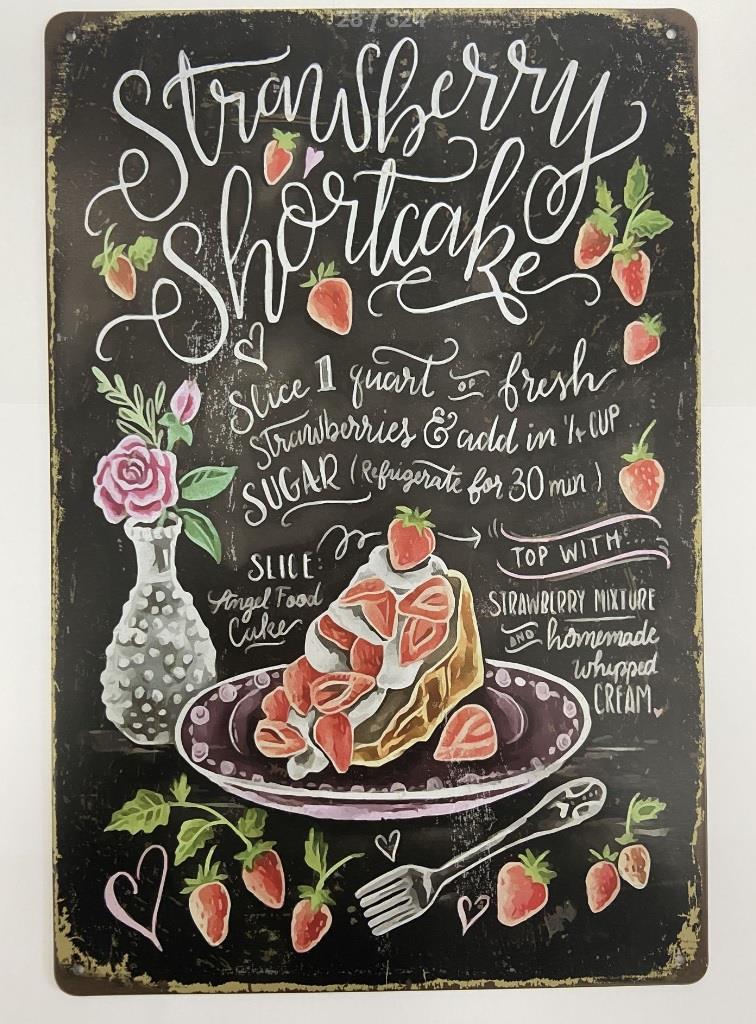 28 / 324
Strawberry
Shortcake
Slice 1 quart of fresh
Strawberries & add in 1/4 CUP
SUGAR (Refrigerate for 30 min)
SLICE
Angel Food
Cake
TOP WITH
STRAWBERRY MIXTURE
AND homemade
whipped
CREAM